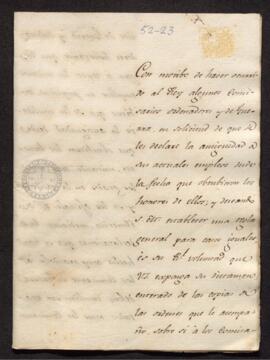 52-23
Con motivo de haver ocurri-
do al Rey algunos Comi-
sarios ordenadores y de Gue-
rra, en solicitud de que se
les declare la antiguedad en
sus actuales empleos desde
la fecha que obtubieron los
honores de ellos; y deseando
S. M. establecer una regla
general para casos iguales
es su Rl. voluntad que
VE exponga su dictamen
enterado de las copias de
las ordenes que le acompa-
ño sobre si a los Comisa-